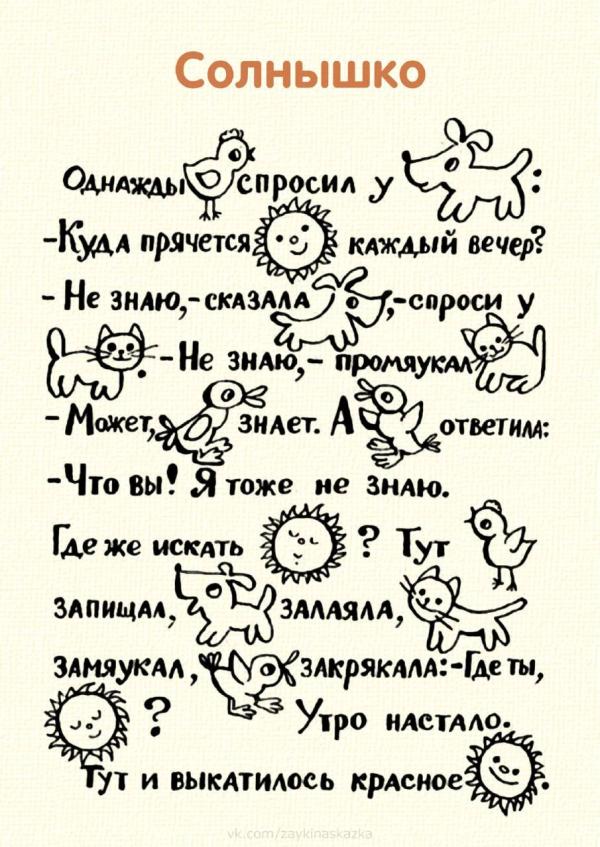 Солнышко
Однажды спросил у :
-Куда прячется каждый вечер?
- Не знаю,-сказала ,-спроси у
. - Не знаю,- промяукал
- Может, знает. А ответила:
-Что вы! Я тоже не знаю.
Где же искать ? Тут
запищал, залаяла,
замяукал, закрякала:-Где ты,
? Утро настало.
Тут и выкатилось красное .
vk.com/zaykinaskazka